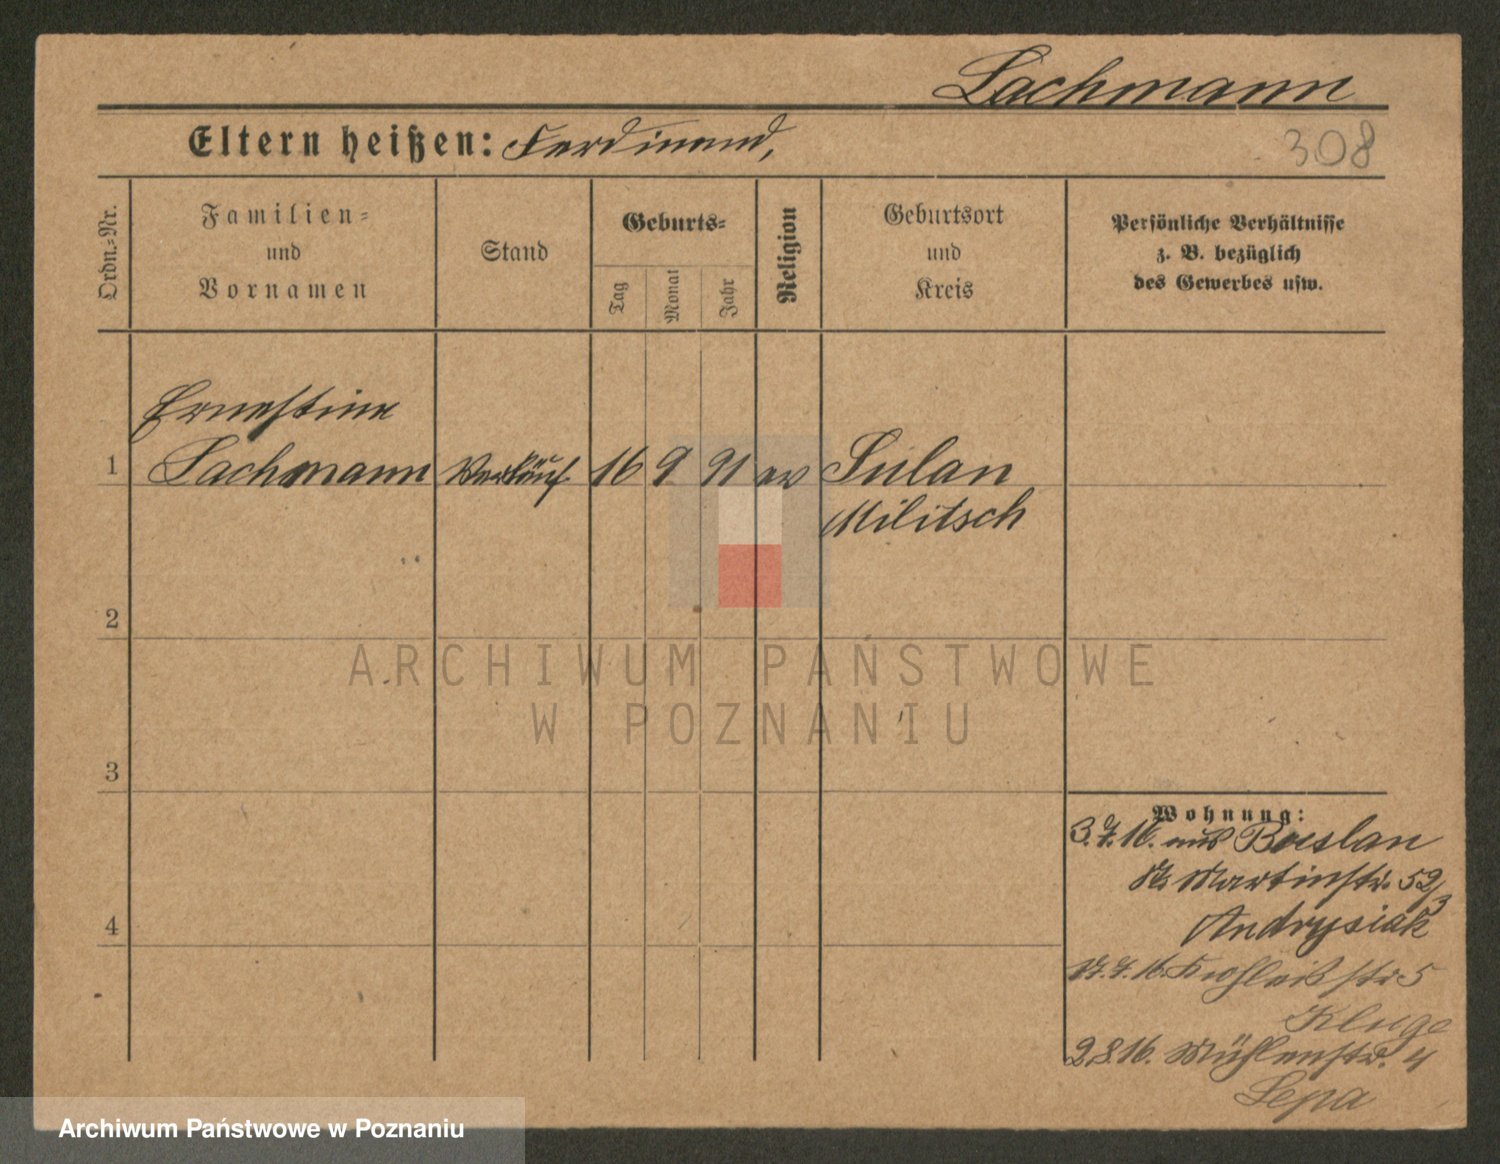 Lachmann
Eltern heißen: Ferdinand,
308
Ordn.=Nr.
Familien=
und
Vornamen
Stand
Geburts=
Tag
Monat
Jahr
Religion
Geburtsort
und
Kreis
Persönliche Verhältnisse
z. B. bezüglich
des Gewerbes usw.
Ernestine
1 Lachmann Verkäuf. 16 9 91 ev Sulau
Militsch
2
ARCHIWUM PAŃSTWOWE
W POZNANIU
3
Wohnung:
3.7.16. aus Breslau
St. Martinstr. 52/3
Andrysiak
17.7.16. str 5
Kluge
2.8.16. Mühlenstr. 4
Lepa
4
Archiwum Państwowe w Poznaniu